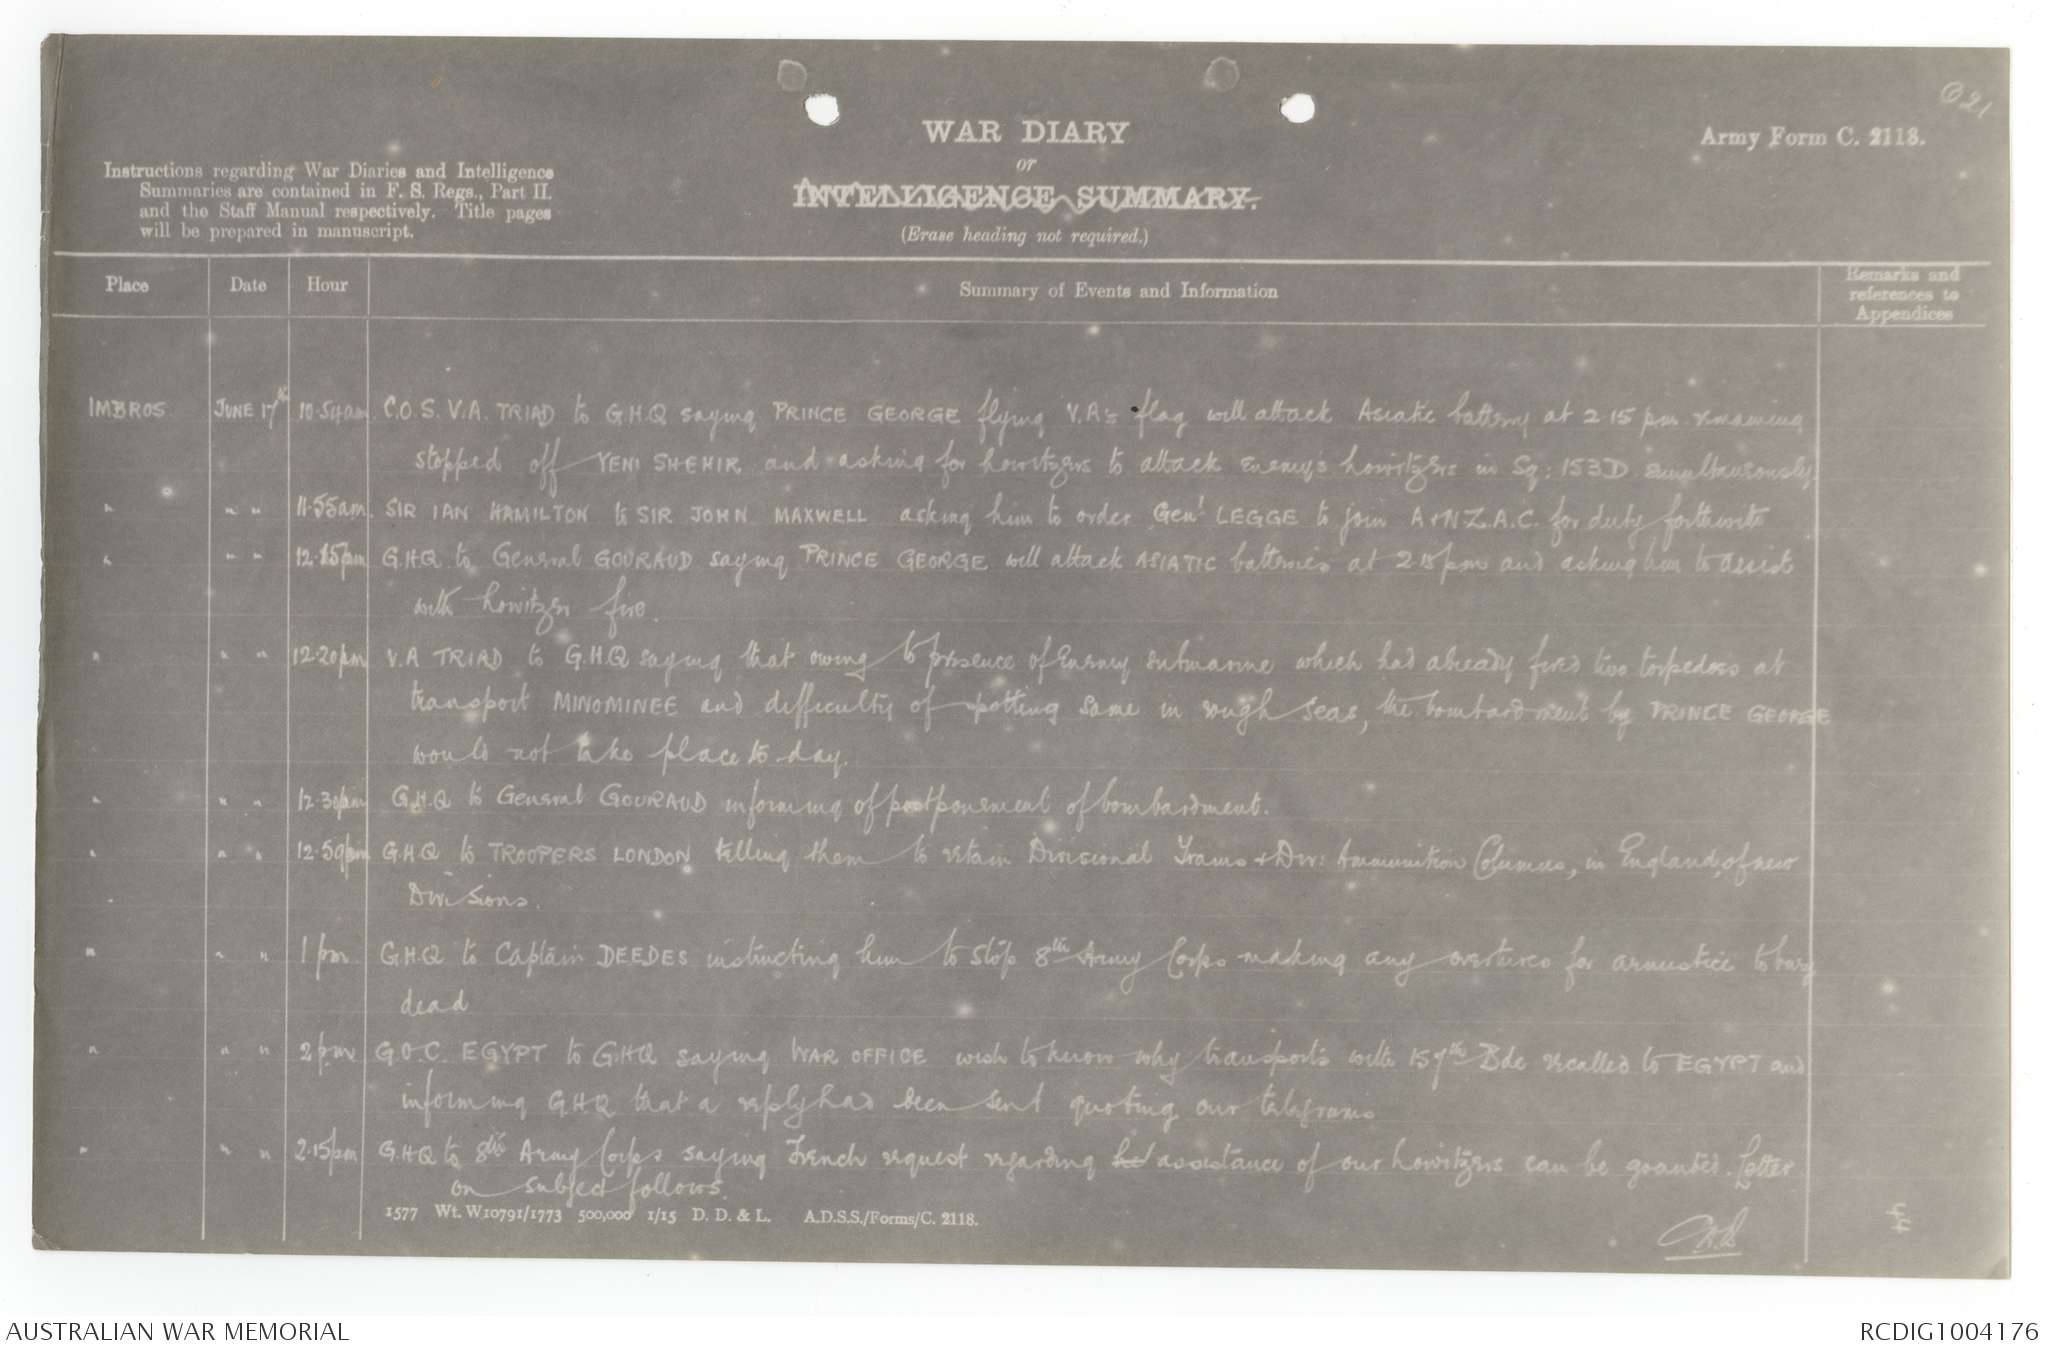 621
WAR DIARY
or
INTELLIGENCE SUMMARY.
(Erase heading not required.)
Army Form C. 2118.
Instructions regarding War Diaries and Intelligence
Summaries are contained in F. S. Regs., Part II.
and the Staff Manual respectively. Title pages
will be prepared in manuscript.
Place Date Hour Summary of Events and Information Remarks and references to Appendices
IMBROS JUNE 17th 10.54am C.O.S. V.A. TRIAD to G.H.Q saying PRINCE GEORGE flying V.A's flag will attack Asiatic battery at 2.15 pm remaining
stopped off YENI SHEHIR and asking for howitzers to attack Enemy's howitzers in Sq: 153D simultaneously
" " " 11.55am. SIR IAN HAMILTON to SIR JOHN MAXWELL asking him to order Genl LEGGE to join A+N.Z.A.C. for duty forthwith
" " " 12.15pm G.H.Q. to General GOURAUD saying PRINCE GEORGE will attack ASIATIC batteries at 2.15pm and asking him to assist
with howitzer fire.
" " " 12.20pm V.A TRIAD to G.H.Q saying that owing to presence of Enemy submarine which had already fired two torpedoes at
transport MINOMINEE and difficulty of spotting same in rough seas, the bombardment by PRINCE GEORGE
would not take place to-day.
" " " 12.30pm G.H.Q to General GOURAUD informing of postponement of bombardment.
" " " 12.59pm G.H.Q to TROOPERS LONDON telling them to retain Divisional Trains + Div: Ammunition Columns, in England, of new
Divisions.
" " " 1 pm G.H.Q to Captain DEEDES instructing him to stop 8th Army Corps making any overtures for armistice to bury
dead
" " " 2 pm G.O.C. EGYPT to GHQ saying WAR OFFICE wish to know why transports with 157th Bde recalled to EGYPT and
informing G.H.Q that a reply had been sent quoting our telegrams
" " " 2.15pm G.H.Q to 8th Army Corps saying French request regarding assistance of our howitzers can be granted. Letter
on subject follows.
1577 Wt. W10791/1773 500,000 1/15 D. D. & L. A.D.S.S./Forms/C. 2118.
AUSTRALIAN WAR MEMORIAL
RCDIG1004176